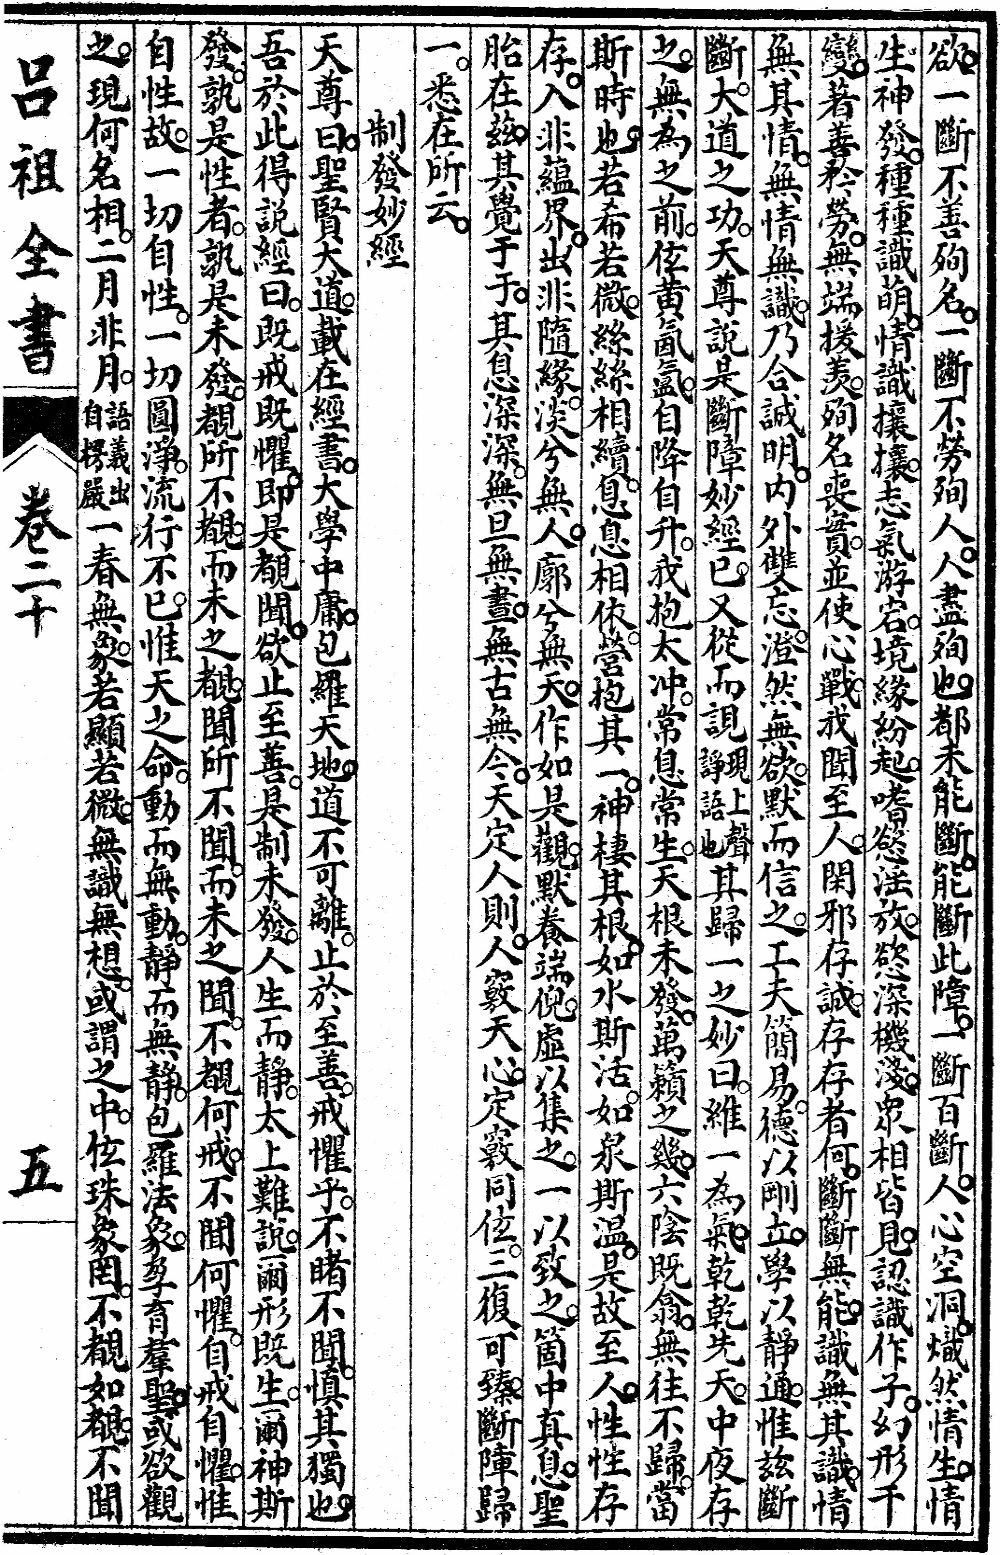 欲。一斷不善殉名。一斷不勞殉人。人盡殉也。都未能斷。能斷此障。一斷百斷。人心空洞。熾然情生。情
生神發。種種識萌。情識攘攘。志氣游宕。境緣紛起。嗜慾淫放。慾深機淺。衆相皆見。認識作子。幻形千
變。著善矜勞。無端援羨。殉名喪實。並使心戰。我聞至人。閑邪存誠。存存者何。斷斷無能。識無其識。情
無其情。無情無識。乃合誠明。內外雙忘。澄然無欲。默而信之。工夫簡易。德以剛立。學以靜通。惟兹斷
斷。大道之功。天尊說是斷障妙經已。又從而說現上聲諍語也其歸一之妙曰。維一為氣。乾乾先天。中夜存
之。無為之前。位黄氤氳。自降自升。我抱太冲。常息常生。天根未發。萬籟之幾。六陰既翕。無往不歸。當
斯時也。若希若微。絲絲相續。息息相依。營抱其一。神棲其根。如水斯活。如泉斯温。是故至人。性性存
存。入非蘊界。出非隨緣。淡兮無人。廓兮無天。作如是觀。默養端倪。虛以集之。一以致之。箇中真息。聖
胎在兹。其覺于于。其息深深。無旦無晝。無古無今。天定人則。人竅天心。定竅同位。三復可臻。斷障歸
一。悉在所云。
制發妙經
天尊曰。聖賢大道。載在經書。大學中庸。包羅天地。道不可離。止於至善。戒懼乎。不睹不聞。慎其獨也。
吾於此得說經曰。既戒既懼。即是覩聞。欲止至善。是制未發。人生而靜。太上難說。爾形既生。爾神斯
發。孰是性者。孰是未發。覩所不覩。而未之覩。聞所不聞。而未之聞。不覩何戒。不聞何懼。自戒自懼。惟
自性故。一切自性。一切圓淨。流行不已。惟天之命。動而無動。靜而無靜。包羅法象。孕育羣聖。或欲觀
之。現何名相。二月非月。語義出自楞嚴一春無象。若顯若微。無識無想。或謂之中。位珠象罔。不覩如覩。不聞
呂祖全書
卷二十
五